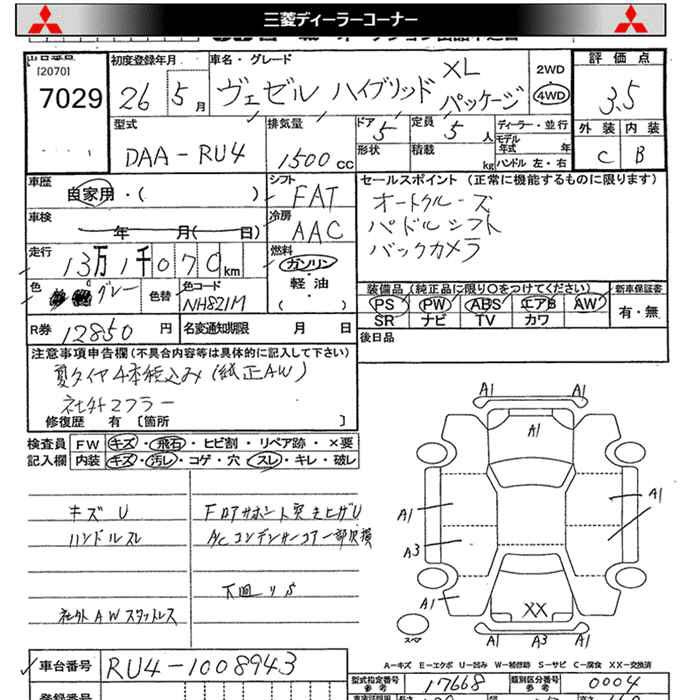 三菱ディーラーコーナー
出品番号
[2070]
7029
初度登録年月
26 5月
車名・グレード
ヴェゼル ハイブリッド XLパッケージ
2WD
4WD
評価点
3.5
外装 内装
C B
型式
DAA-RU4
排気量
1500cc
ドア 5
形状
定員 5人
積載 kg
ディーラー・並行
モデル年式 年
ハンドル 左・右
車歴
自家用・( )
シフト
FAT
車検
年 月( 日)
冷房
AAC
走行
13万1千070km
燃料
ガソリン
軽油
( )
色 グレー
色替
色コード
NH821M
R券 12850円
名変通知期限 月 日
セールスポイント (正常に機能するものに限ります)
オートクルーズ
パドルシフト
バックカメラ
装備品(純正品に限り○をつけてください)
PS PW ABS エアB AW
SR ナビ TV カワ
新車保証書
有・無
後日品
注意事項申告欄(不具合内容等は具体的に記入して下さい)
夏タイヤ4本積込み(純正AW)
社外マフラー
修復歴 有 [箇所 ]
検査員記入欄
FW キズ・飛石・ヒビ割・リペア跡・×要
内装 キズ・汚レ・コゲ・穴・スレ・キレ・破レ
キズU
ハンドルスレ
社外AWスタッドレス
Fロアサポート突き上ゲU
A/Cコンデンサーコアー部欠損
下廻りS
A1
A1
A1
A1
A1
A3
A1
XX
スペア
A1 A3 A1
A-キズ E-エクボ U-凹み W-補修跡 S-サビ C-腐食 XX-交換済
車台番号
RU4-1008943
型式指定番号
参考
17668
類別区分番号
参考
0004
登録番号